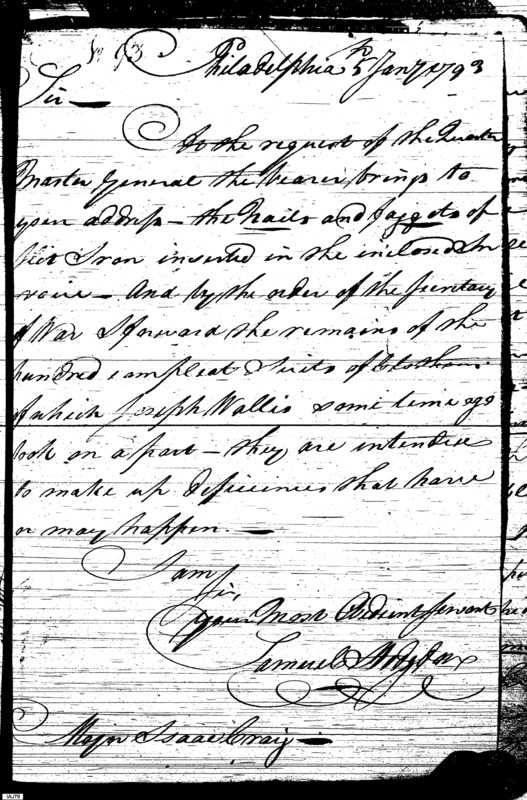 No 93
Philadelphia 5 Jany 1793
Sir —
To the request of the Quarter
Master General the bearer brings to
your address — the Nails and faggots of
slit Iron inserted in the inclosed In
voice — And by the order of the Secretary
of War I forward the remains of the
hundred compleat Suits of
of which Joseph Wallis some time ago
took on a part — they are intended
to make up deficiencies that have
or may happen. —
I am
Sir,
your Most Obedient Servant
Samuel Hodgdon
Major Isaac Craig —
IAJ78